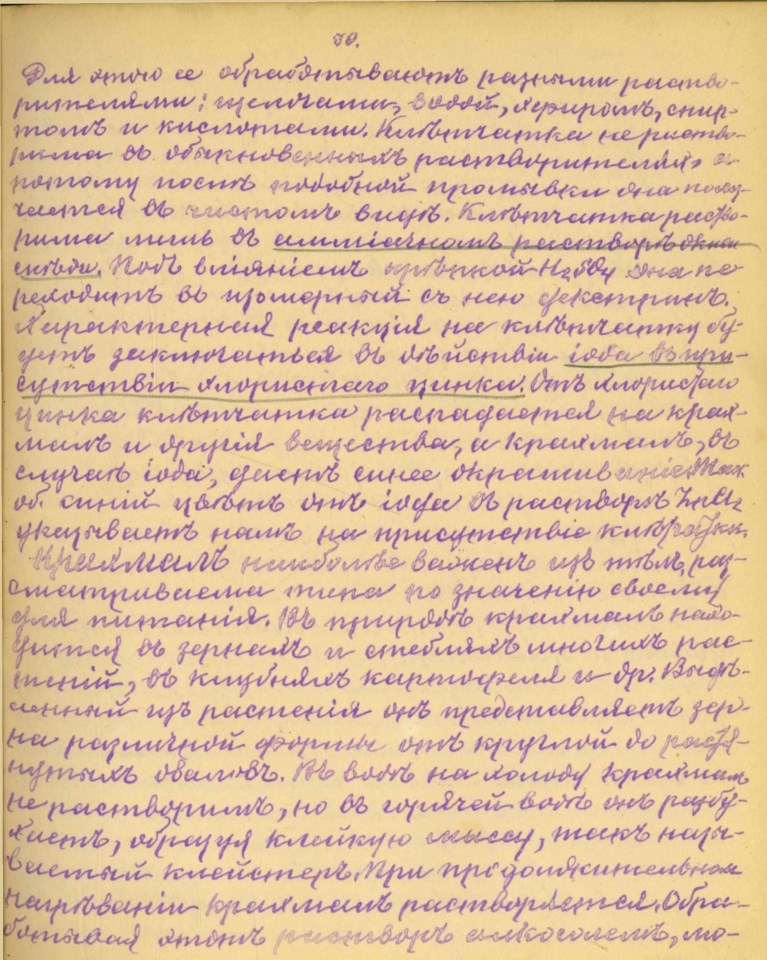 70.
Для этого ее обрабатываютъ разными раство-
рителями: щелочами, водой, эфиромъ, спир-
томъ и кислотами. Клѣтчатка нераство-
рима въ обыкновенныхъ растворителяхъ, а
потому послѣ подобной промывки она полу-
чается въ чистомъ видѣ. Клѣтчатка раство-
рима лишь въ амміачномъ растворѣ окиси
мѣди. Подъ вліяніемъ крѣпкой H₂SO₄ она пе
реходитъ въ изомерный съ нею декстринъ.
Характерная реакція на клѣтчатку бу-
детъ заключаться въ дѣйствіи іода въ при-
сутствіи хлористаго цинка. Отъ хлористаго
цинка клѣтчатка распадается на крах-
малъ и другія вещества, а крахмалъ, въ
случаѣ іода, даетъ синее окрашиваніе. Так.
об. синій цвѣтъ отъ іода въ растворѣ ZnCl₂
указываетъ намъ на присутствіе клѣтчатки.
Крахмалъ наиболѣе важенъ изъ тѣлъ раз-
сматриваема типа по значенію своему
для питанія. Въ природѣ крахмалъ нахо-
дится въ зернахъ и стебляхъ многихъ рас-
теній, въ клубняхъ картофеля и др. Выдѣ-
ленный изъ растенія онъ представляетъ зер-
на различной формы отъ круглой до растя-
нутыхъ оваловъ. Въ водѣ на холоду крахмалъ
не растворимъ, но въ горячей водѣ онъ разбу-
хаетъ, образуя клейкую массу, такъ назы-
ваемый клейстеръ. При продолжительномъ
нагрѣваніи крахмалъ растворяется. Обра-
ботывая этотъ растворъ алкоголемъ, мо-